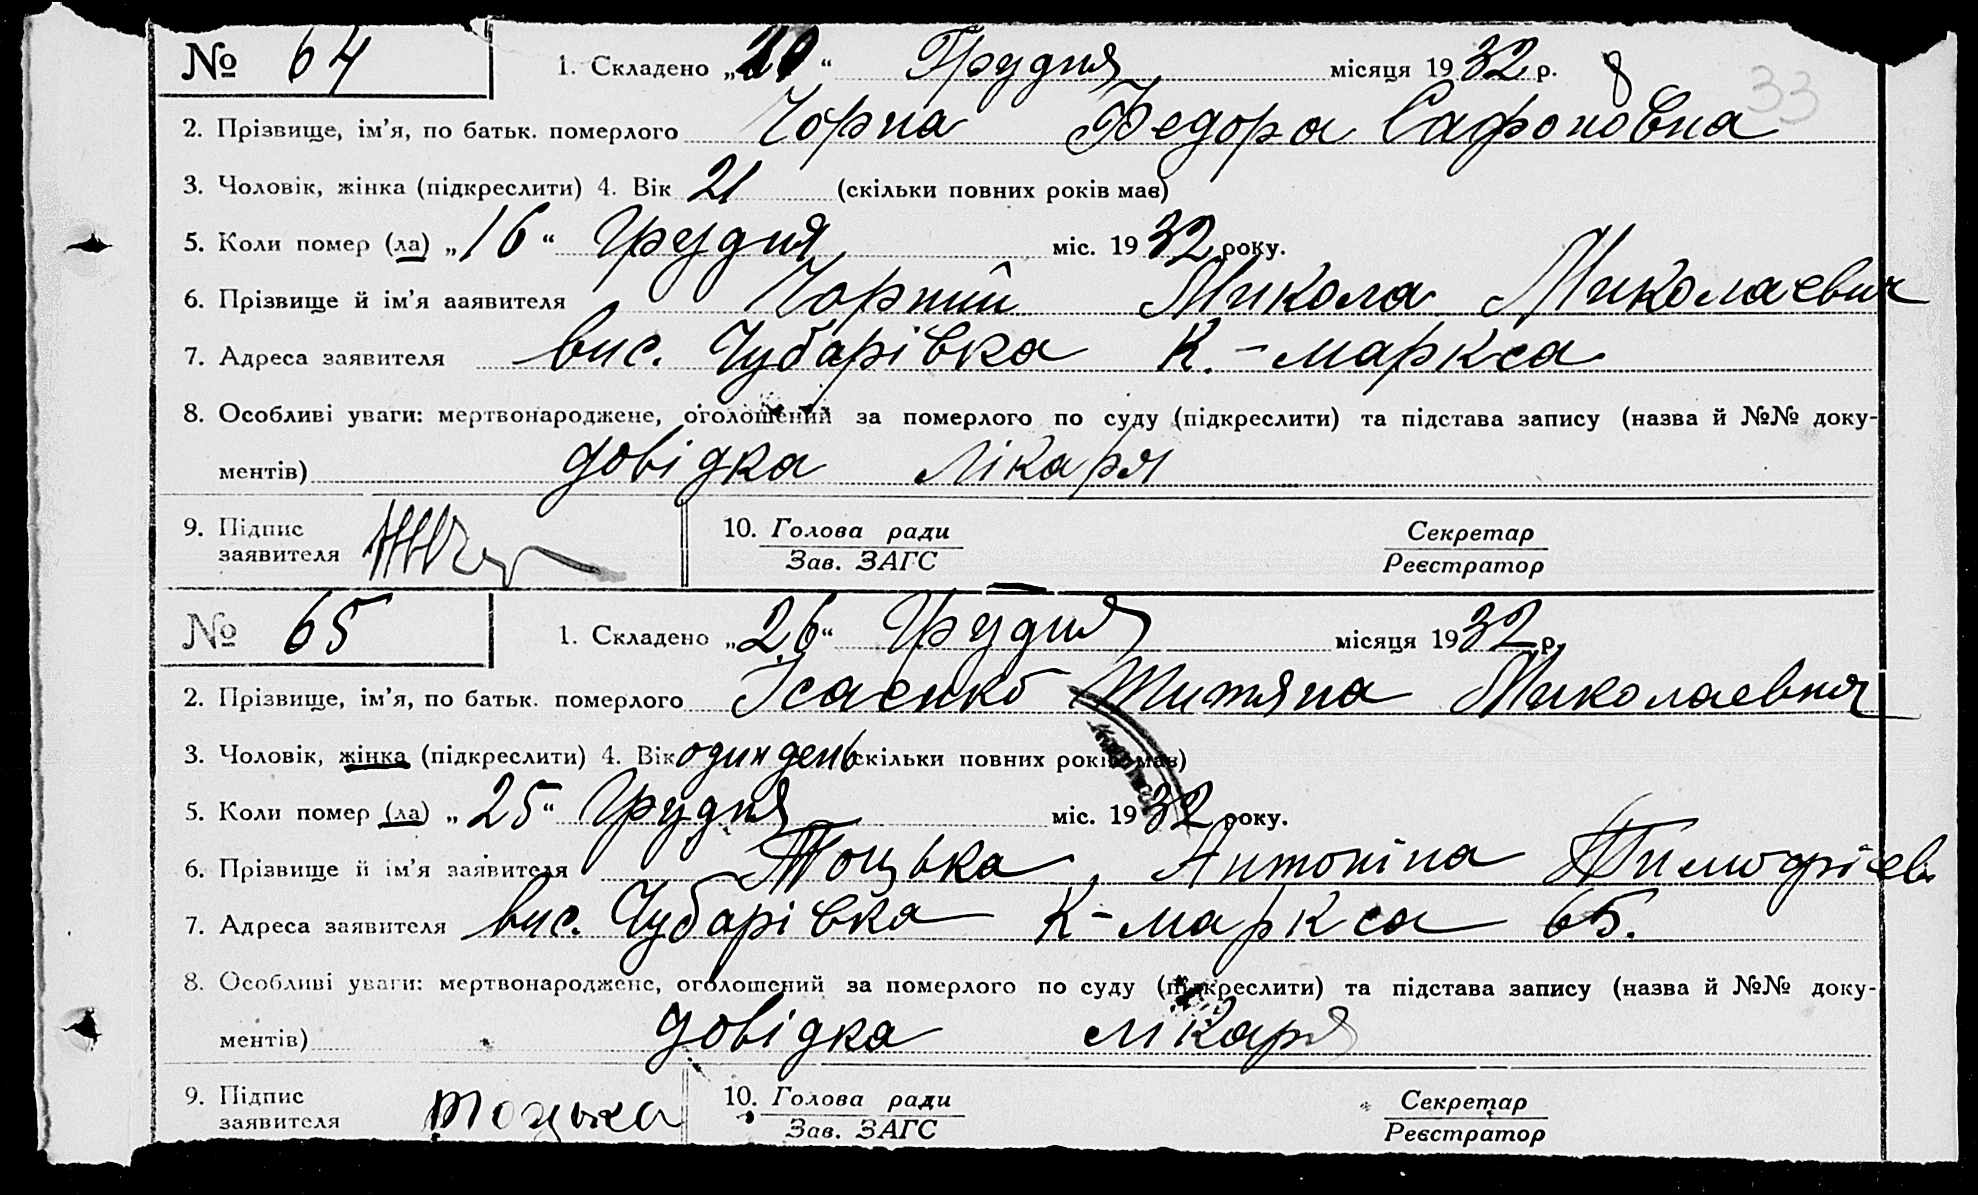 № 64 1. Складено „20“ Грудня місяця 1932 р. 8 33
2. Прізвище, ім’я, по батьк. померлого Чорна Федора Сафоновна
3. Чоловік, жінка (підкреслити) 4. Вік 21 (скільки повних років має)
5. Коли помер (ла) „16“ Грудня міс. 1932 року.
6. Прізвище й ім’я заявителя Чорний Микола Миколаевич
7. Адреса заявителя вис. Чубарівка К.-маркса
8. Особливі уваги: мертвонароджене, оголошений за померлого по суду (підкреслити) та підстава запису (назва й №№ доку-
ментів) довідка лікаря
9. Підпис заявителя 10. Голова ради Секретар
Зав. ЗАГС Реєстратор
№ 65 1. Складено „26“ Грудня місяця 1932 р.
2. Прізвище, ім’я, по батьк. померлого Ісаєнко Титяна Миколаевня
3. Чоловік, жінка (підкреслити) 4. Вік один день скільки повних років має)
5. Коли помер (ла) „25“ Грудня міс. 1932 року.
6. Прізвище й ім’я заявителя Тоцька Антоніна Тимофієв.
7. Адреса заявителя вис. Чубарівка К-маркса 65.
8. Особливі уваги: мертвонароджене, оголошений за померлого по суду (підкреслити) та підстава запису (назва й №№ доку-
ментів) довідка лікаря
9. Підпис заявителя Тоцька 10. Голова ради Секретар
Зав. ЗАГС Реєстратор